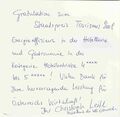 Gratulation zum
Staatspreis Tourismus
Energieeffizienz in der Hotellerie
und Gastronomie in der
Kategorie Hotelbetriebe 4****
bis 5*****! Vielen Dank für
Ihre hervorragende Leistung für
Österreichs Wirtschaft!
Ihr Christoph Leitl